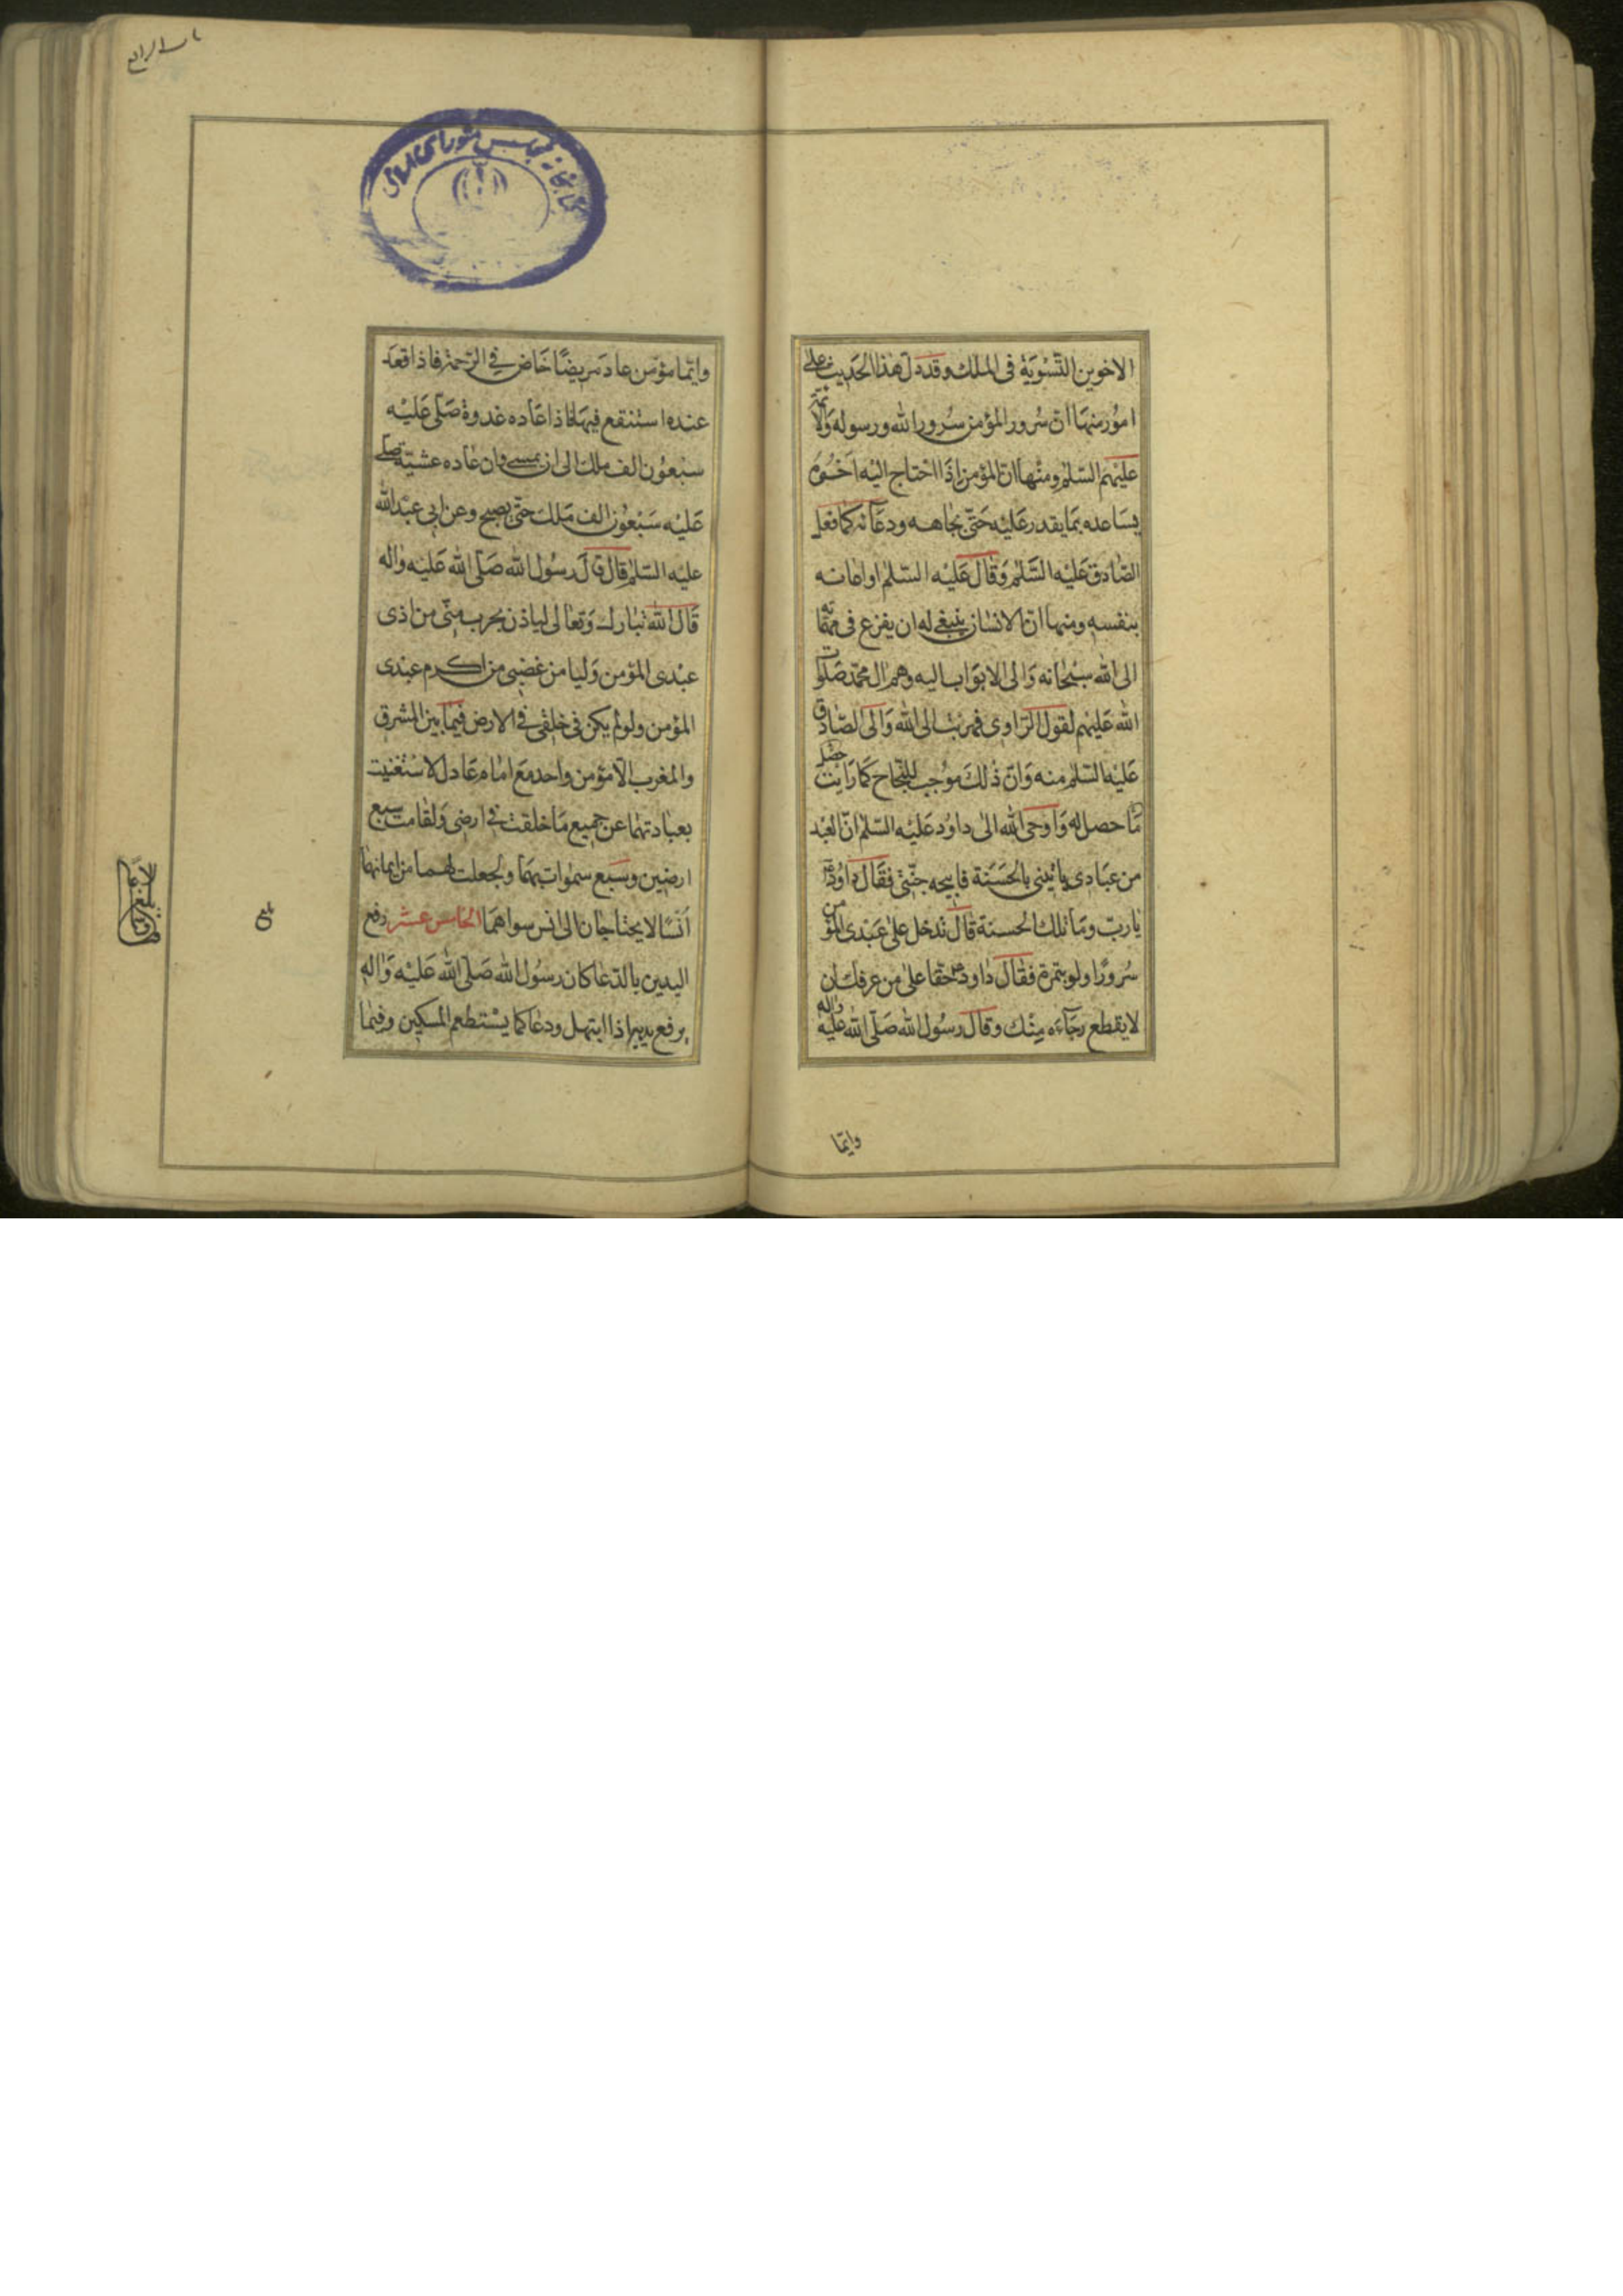 الاخوين التّسْوَيَة فى الملك وقد دلّ هٰذا الحَديث على
امُور منهَا انّ سُرور المؤمن سُرور الله ورسوله وَالائمّة
عليهم السّلم ومنْها انّ المؤمن اذَا احْتاج اليْه اخوُه
يسَاعده بمَا يقدر عَليْه حَتّى بجاهه ودعآئه كما فعل
الصّادق عَليْه السَّلم وَقال عَليْه السّلم او اعانه
بنفسه ومنها انّ الانسٰان ينبغى له ان يفزع فى مهمّاته
الى الله سبْحٰانه وَالى الابوَاب اليه وهم آل محمّد صَلوات
الله عَليهم لقول الرّاوى فهربت الى الله وَالى الصّادق
عَليْه السّلم منه وَانّ ذٰلكَ موُجب للنّجاح كما رَايت حصل
مَا حصل له وَاوحى الله الى داوُد عَليْه السّلم انّ العَبْد
من عبَادى يأتينى بالحَسَنة فابيحه جنّتى فقَال داوُد ع
يٰا ربّ ومَا تلك الحسنَة قٰال تدخل علىٰ عَبْدى المؤمن
سُرورًا ولو بتمرة فقال داود ع حقّا علىٰ من عرفك ان
لا يقطع رجآءه منْك وقال رسُول الله صَلّى الله عليْه واله
وايّما
باب الرابع
كتابخانه مجلس شوراى اسلامى
وايّما مؤمن عاد مريضًا خَاض فى الرّحمة فاذا قعَد
عنده استنقع فيهَا فاذا عَاده غدوة صَلّى عَليْه
سبْعُون الف ملك الى ان يمسى وان عٰاده عشيّة صلى
عَليْه سَبْعُون الف مَلك حتّى يصبح وعن ابى عبْد الله
عليْه السّلم قال قال رسُول الله صَلّى الله عَليْه واله
قَال الله تبٰارك وَتعٰالى لياذن بحرب منّى من اذى
عبْدى المؤمن وَليا من غضبى من اكرم عبْدى
المؤمن ولو لم يكن فى خلقى فى الارض فيمٰا بين المشرق
والمغرب الّا مؤمن واحد مع امٰام عَادل لاستغنيت
بعبٰادتهمٰا عن جميع مَا خلقت فى ارضى وَلقٰامت سبع
ارضين وسَبع سمٰوات بهمَا ولجعلت لهما من ايمانهمٰا
اُنْسًا لا يحتاجٰان الى انس سواهمَا الخامس عشر رفع
اليدين بالدّعَا كان رسُول الله صَلّى الله عَليْه وَاله
يرفع يديه اذا ابتهل ودعَا كما يسْتطعم المسكين وفيمٰا
بلغ